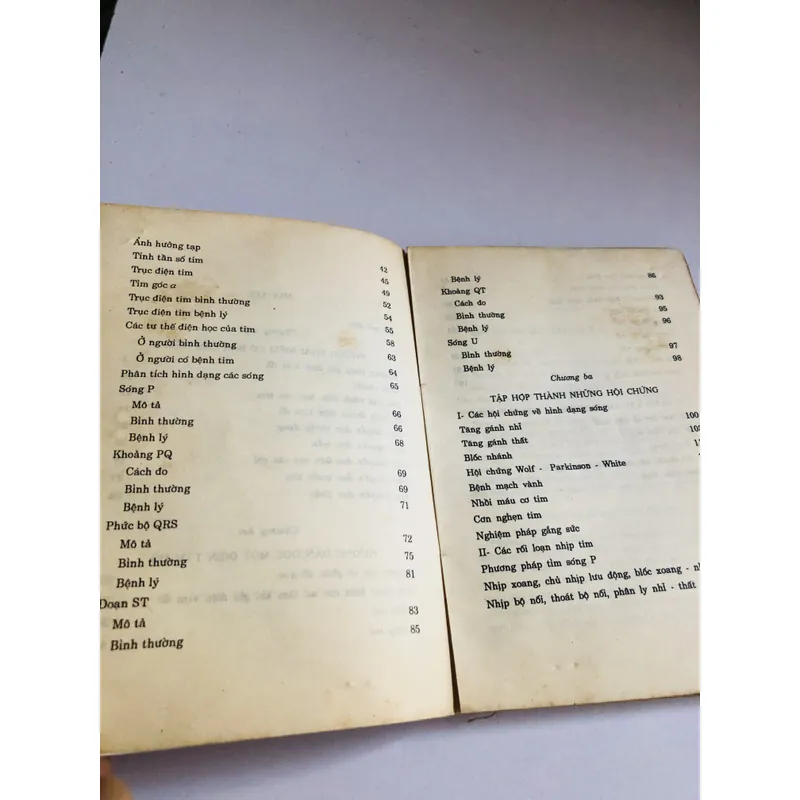 Ảnh hưởng tạp
Tính tần số tim 42
Trục điện tim 45
Tìm góc α 49
Trục điện tim bình thường 52
Trục điện tim bệnh lý 54
Các tư thế điện học của tim 55
Ở người bình thường 58
Ở người có bệnh tim 63
Phân tích hình dạng các sóng 64
Sóng P 65
Mô tả
Bình thường 66
Bệnh lý 66
Khoảng PQ 68
Cách đo 69
Bình thường 69
Bệnh lý 71
Phức bộ QRS
Mô tả 72
Bình thường 75
Bệnh lý 81
Đoạn ST
Mô tả 83
Bình thường 85
Bệnh lý 86
Khoảng QT
Cách đo 93
Bình thường 95
Bệnh lý 96
Sóng U
Bình thường 97
Bệnh lý 98
Chương ba
TẬP HỢP THÀNH NHỮNG HỘI CHỨNG
I- Các hội chứng về hình dạng sóng
Tăng gánh nhĩ 100
Tăng gánh thất
Blốc nhánh
Hội chứng Wolf - Parkinson - White
Bệnh mạch vành
Nhồi máu cơ tim
Cơn nghẹn tim
Nghiệm pháp gắng sức
II- Các rối loạn nhịp tim
Phương pháp tìm sóng P
Nhịp xoang, chủ nhịp lưu động, blốc xoang -
Nhịp bộ nối, thoát bộ nối, phân ly nhĩ - thất